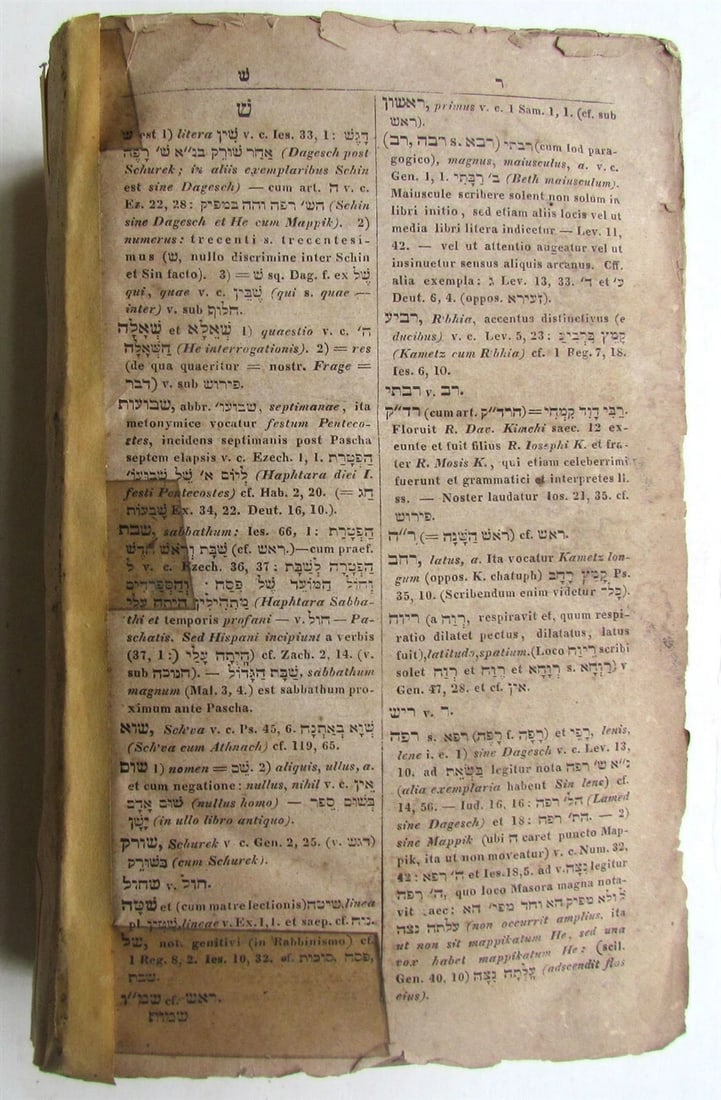 ר
ראשון, primus v. c. 1 Sam. 1, 1. (cf. sub
ראש).
(רבא s. רבה, רב) רבתי (cum Iod para-
gogico), magnus, maiusculus, a. v. c.
Gen. 1, 1. ב' רבתי (Beth maiusculum).
Maiuscule scribere solent non solum in
libri initio, sed etiam aliis locis vel ut
media libri litera indicetur — Lev. 11,
42. — vel ut attentio augeatur vel ut
insinuetur sensus aliquis arcanus. Cff.
alia exempla: ג Lev. 13, 33. ע' et ד'
Deut. 6, 4. (oppos. זעירא).
רביע, R'bhia, accentus distinctivus (e
ducibus) v. c. Lev. 5, 23: קמץ ברביע
(Kametz cum R'bhia) cf. 1 Reg. 7, 18.
Ies. 6, 10.
רבתי v. רב.
רד"ק (cum art. הרד"ק)=רבי דוד קמחי.
Floruit R. Dav. Kimchi saec. 12 ex-
eunte et fuit filius R. Iosephi K. et fra-
ter R. Mosis K., qui etiam celeberrimi
fuerunt et grammatici et interpretes li.
ss. — Noster laudatur Ios. 21, 35. cf.
פירוש.
ר"ה (= ראש השנה) cf. ראש.
רחב, latus, a. Ita vocatur Kametz lon-
gum (oppos. K. chatuph) קמץ רחב Ps.
35, 10. (Scribendum enim videtur כל־).
ריוח (a רוח, respiravit et, quum respi-
ratio dilatet pectus, dilatatus, latus
fuit), latitudo, spatium. (Loco ריוח scribi
solet רוח et רוח et רוחא s. רוחא) v
Gen. 47, 28. et cf. אין.
ריש v. ר.
רפה s. רפא (רפה f. רפה) et רפי, lenis,
lene i. e. 1) sine Dagesch v. c. Lev. 13,
10. ad שאת legitur nota נ"א ש' רפה
(alia exemplaria habent Sin lene) cf.
14, 56. — Iud. 16, 16: הל' רפה (Lamed
sine Dagesch) et 18: רפה. — 2)
sine Mappik (ubi ה caret puncto Map-
pik, ita ut non moveatur) v. c. Num. 32,
42: ה' רפא et Ies. 18, 5. ad v. נצה legitur
ה' רפה, quo loco Masora magna nota-
vit haec: ולא מפיק הא וחד מפי' הא
עלתה נצה (non occurrit amplius, ita
ut non sit mappikatum He, sed una
vox habet mappikatum He: (scil.
Gen. 40, 10) עלתה נצה (adscendit flos
eius).
ש
ש
ש est 1) litera שין v. c. Ies. 33, 1: דגש
אחר שורק בנ"א ש' רפה (Dagesch post
Schurek; in aliis exemplaribus Schin
est sine Dagesch) — cum art. ה v. c.
Ez. 22, 28: הש' רפה והה במפיק (Schin
sine Dagesch et He cum Mappik). 2)
numerus: trecenti s. trecentesi-
mus (ש, nullo discrimine inter Schin
et Sin facto). 3) = ש sq. Dag. f. ex של
qui, quae v. c. שבין (qui s. quae —
inter) v. sub חלוף.
שאלה et שאלא 1) quaestio v. c. ה'
השאלה (He interrogationis). 2) = res
(de qua quaeritur = nostr. Frage =
דבר) v. sub פירוש.
שבועות, abbr. שבועו', septimanae, ita
metonymice vocatur festum Penteco-
stes, incidens septimanis post Pascha
septem elapsis v. c. Ezech. 1, 1. הפטרת
ליום א' של שבועו' (Haphtara diei I.
festi Pentecostes) cf. Hab. 2, 20. (= חג
שבעות Ex. 34, 22. Deut. 16, 10.).
שבת, sabbathum: Ies. 66, 1: הפטרת
שבת וראש חדש (cf. ראש.)—cum praef.
ל v. c. Ezech. 36, 37: הפטרה לשבת
וחול המועד של פסח · והספרדים
מתחילין היתה עלי (Haphtara Sabba-
thi et temporis profani — v. חול — Pa-
schatis. Sed Hispani incipiunt a verbis
(37, 1:) היתה עלי) cf. Zach. 2, 14. (v.
sub חנוכה). — שבת הגדול, sabbathum
magnum (Mal. 3, 4.) est sabbathum pro-
ximum ante Pascha.
שוא, Sch'va v. c. Ps. 45, 6. שוא באתנח
(Sch'va cum Athnach) cf. 119, 65.
שום 1) nomen = שם. 2) aliquis, ullus, a.
et cum negatione: nullus, nihil v. c. אין
שום אדם (nullus homo) — בשום ספר
ישן (in ullo libro antiquo).
שורק, Schurek v c. Gen. 2, 25. (v. דגש)
בשורק (cum Schurek).
שחול v. חול.
שטה et (cum matre lectionis) שיטה, linea
pl. שטין, lineae v. Ex. 1, 1. et saep. cf.
של, not. genitivi (in Rabbinismo) cf.
1 Reg. 8, 2. Ies. 10, 32. cf. פסח, סוכות,
שבת.
שמו"ר cf. ראש.
שמות